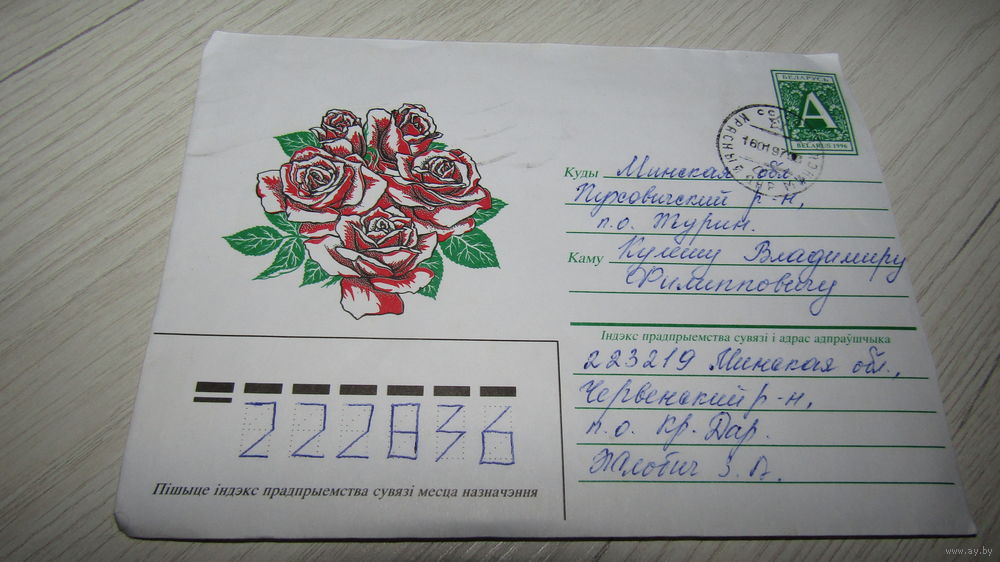 БЕЛАРУСЬ
А
BELARUS 1996
КРАСНЫ
160197
Куды Минская обл.
Пуховичский р-н,
п.о. Турин.
Каму Кулешу Владимиру
Филипповичу
Індэкс прадпрыемства сувязі і адрас адпраўшчыка
223219 Минская обл.,
Червенский р-н,
п.о. Кр. Дар.
Жлобич З. А.
222836
Пішыце індэкс прадпрыемства сувязі месца назначэння
www.ay.by